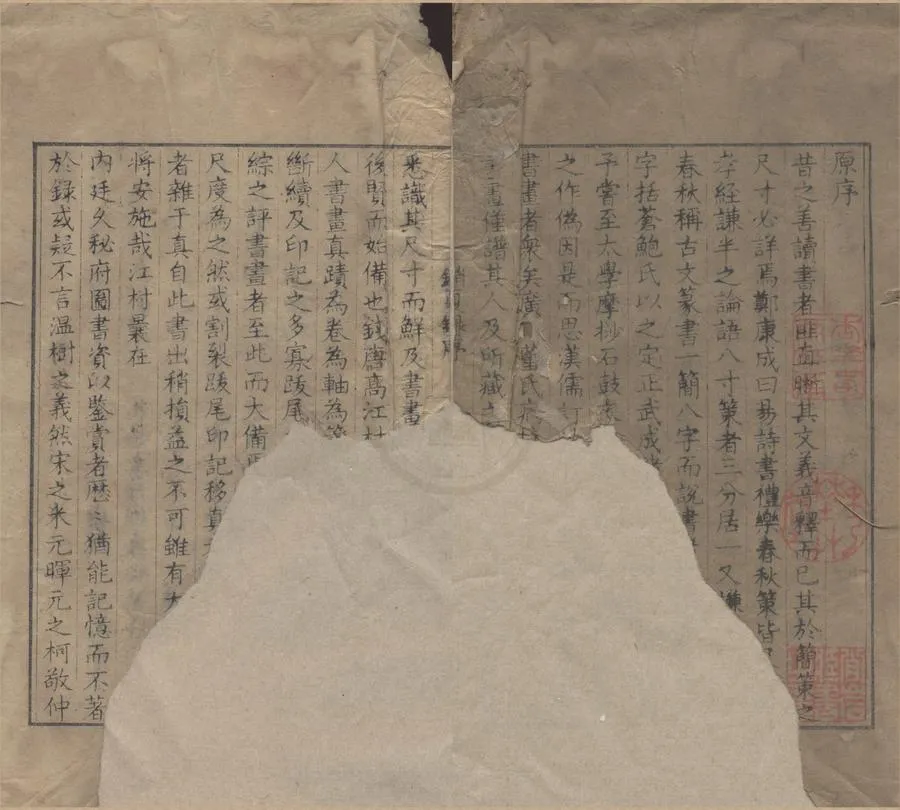 原序
昔之善讀書者匪直晰其文義音釋而已其於簡策之
尺寸必詳焉鄭康成曰易詩書禮樂春秋策皆
孝經謙半之論語八寸策者三分居一又謙
春秋稱古文篆書一簡八字而說書
字括蒼鮑氏以之定正武成
子嘗至太學摩抄石鼓
之作偽因是而思漢儒訂
書畫者衆矣廣川董氏
書畫僅譜其人及所藏之
銷夏錄序
悉識其尺寸而鮮及書畫
後賢而始備也錢唐高江村
人書畫真蹟為卷為軸為
斷續及印記之多寡跋尾
綜之評書畫者至此而大備
尺度為之然或割裂跋尾印記移真
者雜于真自此書出稍損益之不可雖有
將安施哉江村曩在
內廷久秘府圖書資以鑒賞者歷歷猶能記憶而不著
於錄或疑不言溫樹之義然宋之米元暉元之柯敬仲